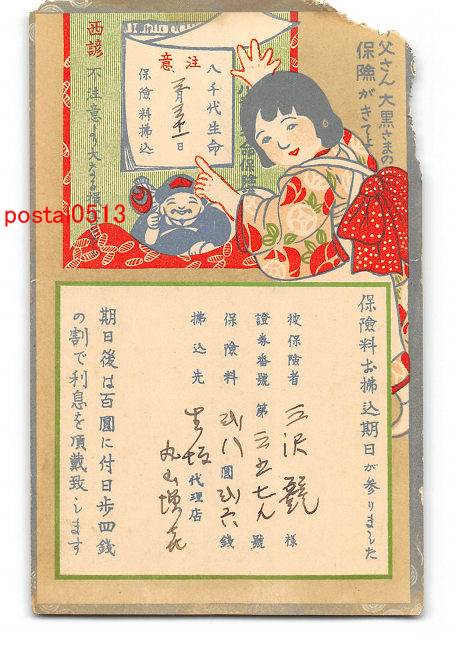 父さん 大黒さまの
保險がきてよ
西諺
不注意より大なる
注意
八千代生命
月三十一日
保險料拂込
posta 0513
保險料お拂込期日が參りました
被保險者 三沢 様
證券番號 第三五七八號
保險料 圓 六錢
拂込先 生坂代理店
丸山増㐂
期日後は百圓に付日歩四錢
の割で利息を頂戴致します